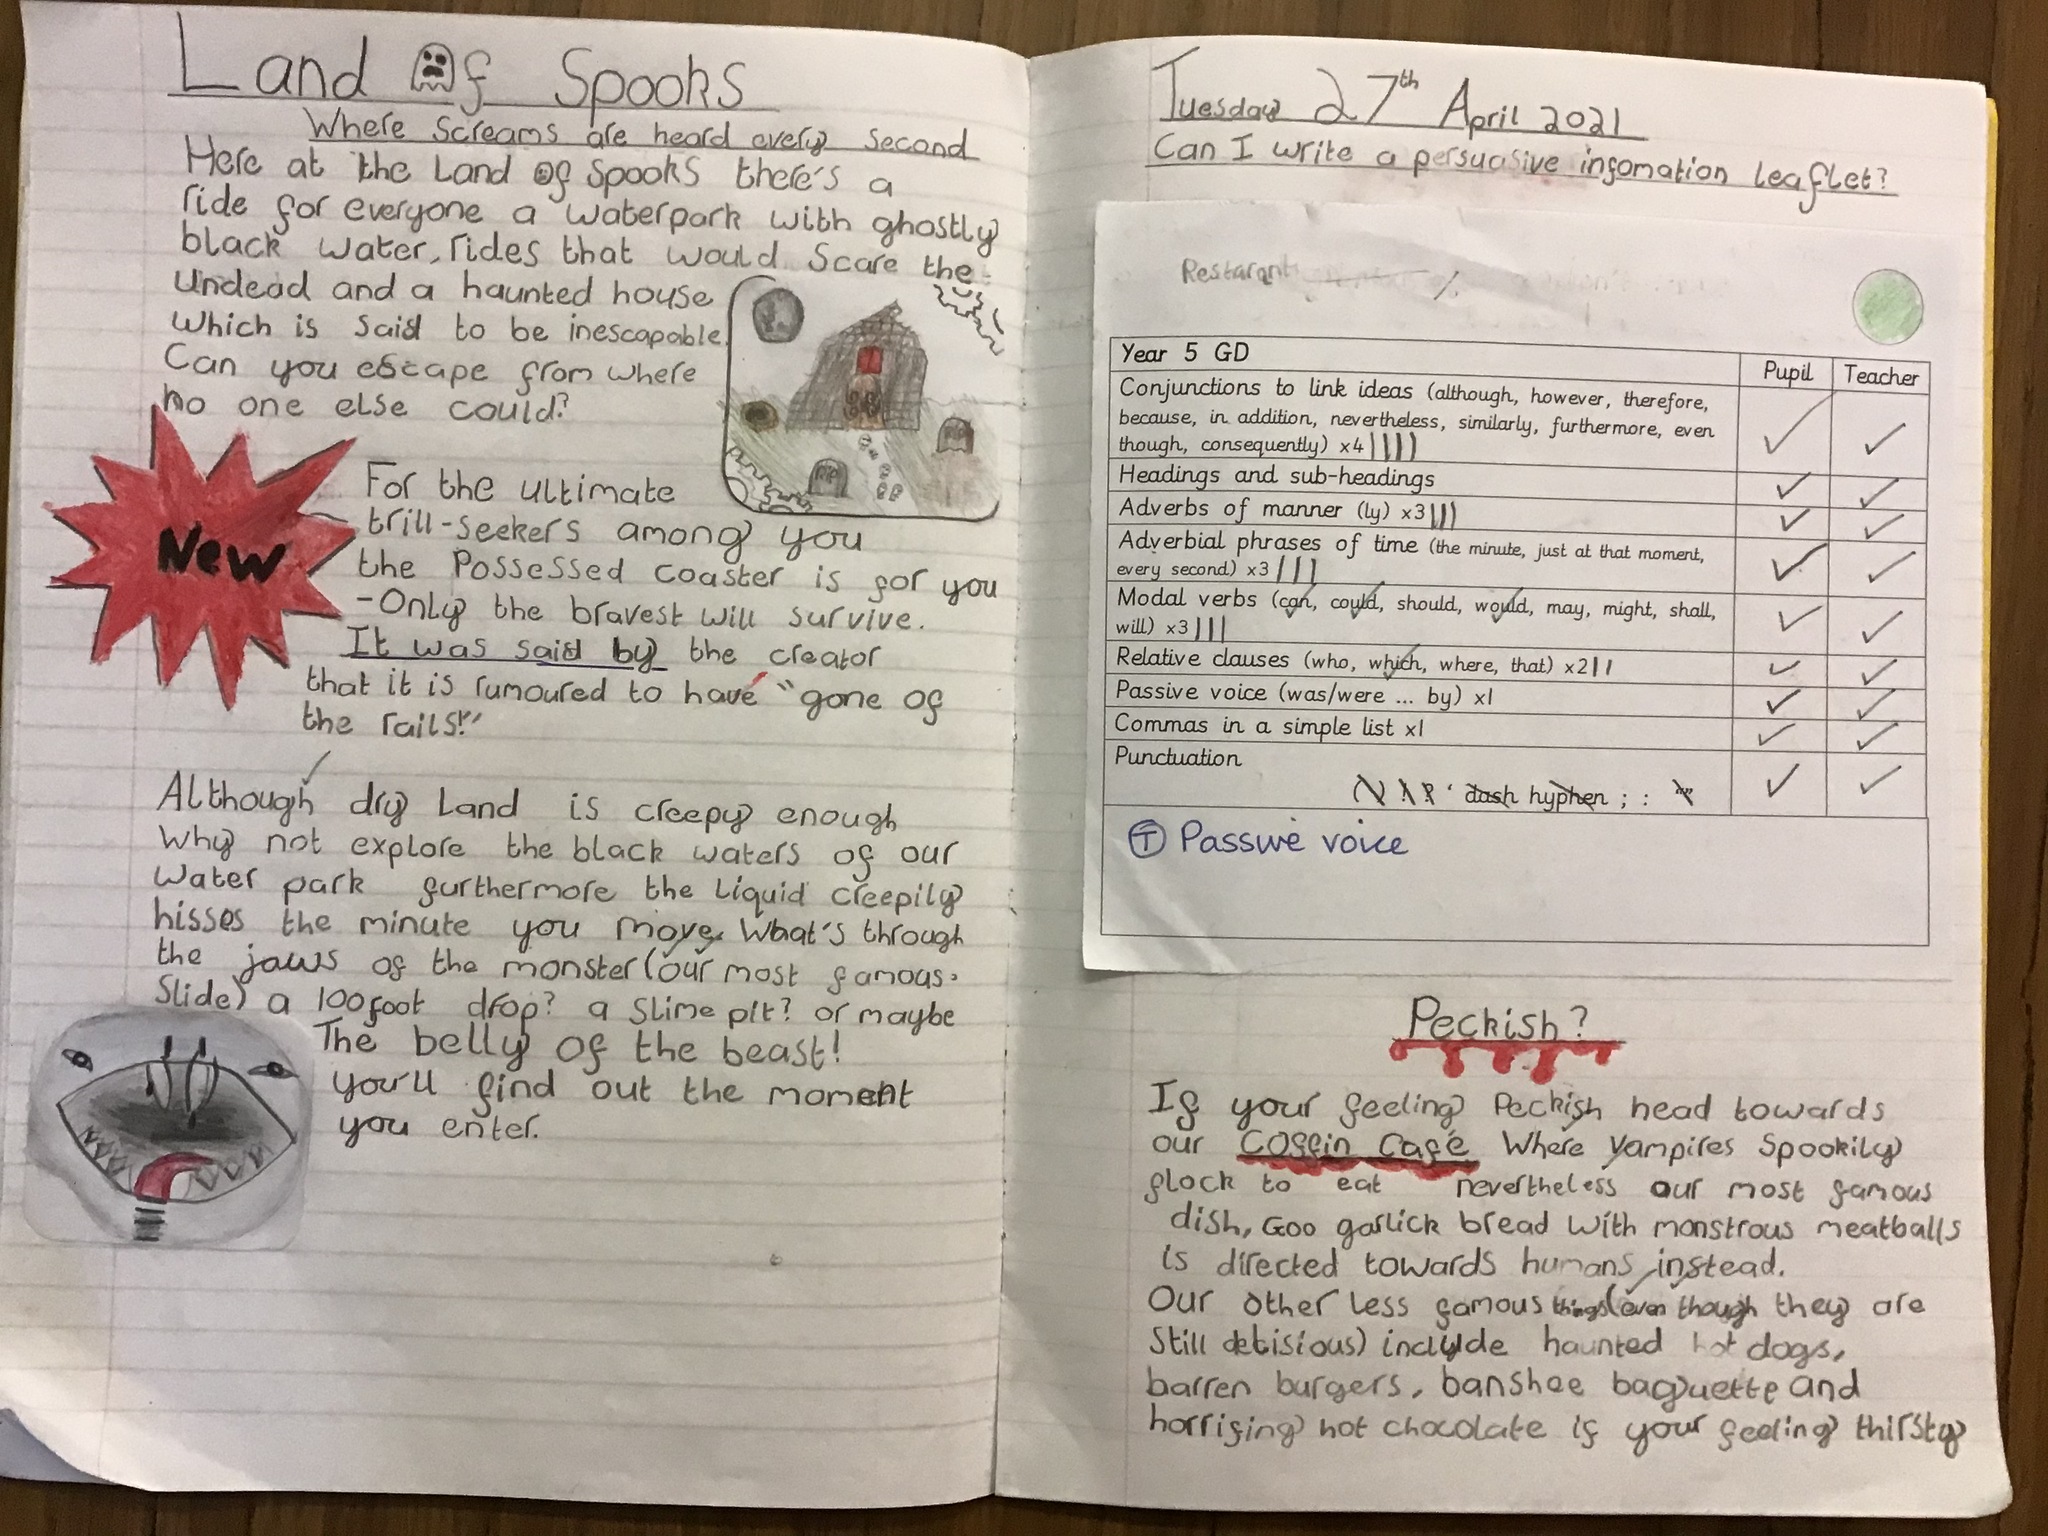 Land Of Spooks
Where Screams are heard every second
Here at the Land Of Spooks there's a
ride for everyone a waterpark with ghostly
black water, rides that would scare the
Undead and a haunted house
which is said to be inescapable.
Can you escape from where
no one else could?
New
For the ultimate
trill-seekers among you
the Possessed coaster is for you
-Only the bravest will survive.
It was said by the creator
that it is rumoured to have "gone of
the rails!"
Although dry Land is creepy enough
Why not explore the black waters of our
Water park furthermore the liquid creepily
hisses the minute you move. What's through
the jaws of the monster (our most famous
Slide) a 100 foot drop? a slime pit? or maybe
The belly of the beast!
you'll find out the moment
you enter.
RIP
RIP
Tuesday 27th April 2021
Can I write a persuasive infomation leaflet?
Restarant
Year 5 GD
Pupil
Teacher
Conjunctions to link ideas (although, however, therefore,
because, in addition, nevertheless, similarly, furthermore, even
though, consequently) x4 ||||
Headings and sub-headings
Adverbs of manner (ly) x3 |||
Adverbial phrases of time (the minute, just at that moment,
every second) x3 |||
Modal verbs (can, could, should, would, may, might, shall,
will) x3 |||
Relative clauses (who, which, where, that) x2 ||
Passive voice (was/were ... by) x1
Commas in a simple list x1
Punctuation
( ) , ! ? ' dash hyphen ; : ""
T Passive voice
Peckish?
If your feeling Peckish head towards
our Coffin Café Where Vampires Spookily
flock to eat nevertheless our most famous
dish, Goo garlick bread with monstrous meatballs
is directed towards humans instead.
Our other less famous things (even though they are
Still delisious) include haunted hot dogs,
barren burgers, banshee baguette and
horrifing hot chocolate if your feeling thirsty